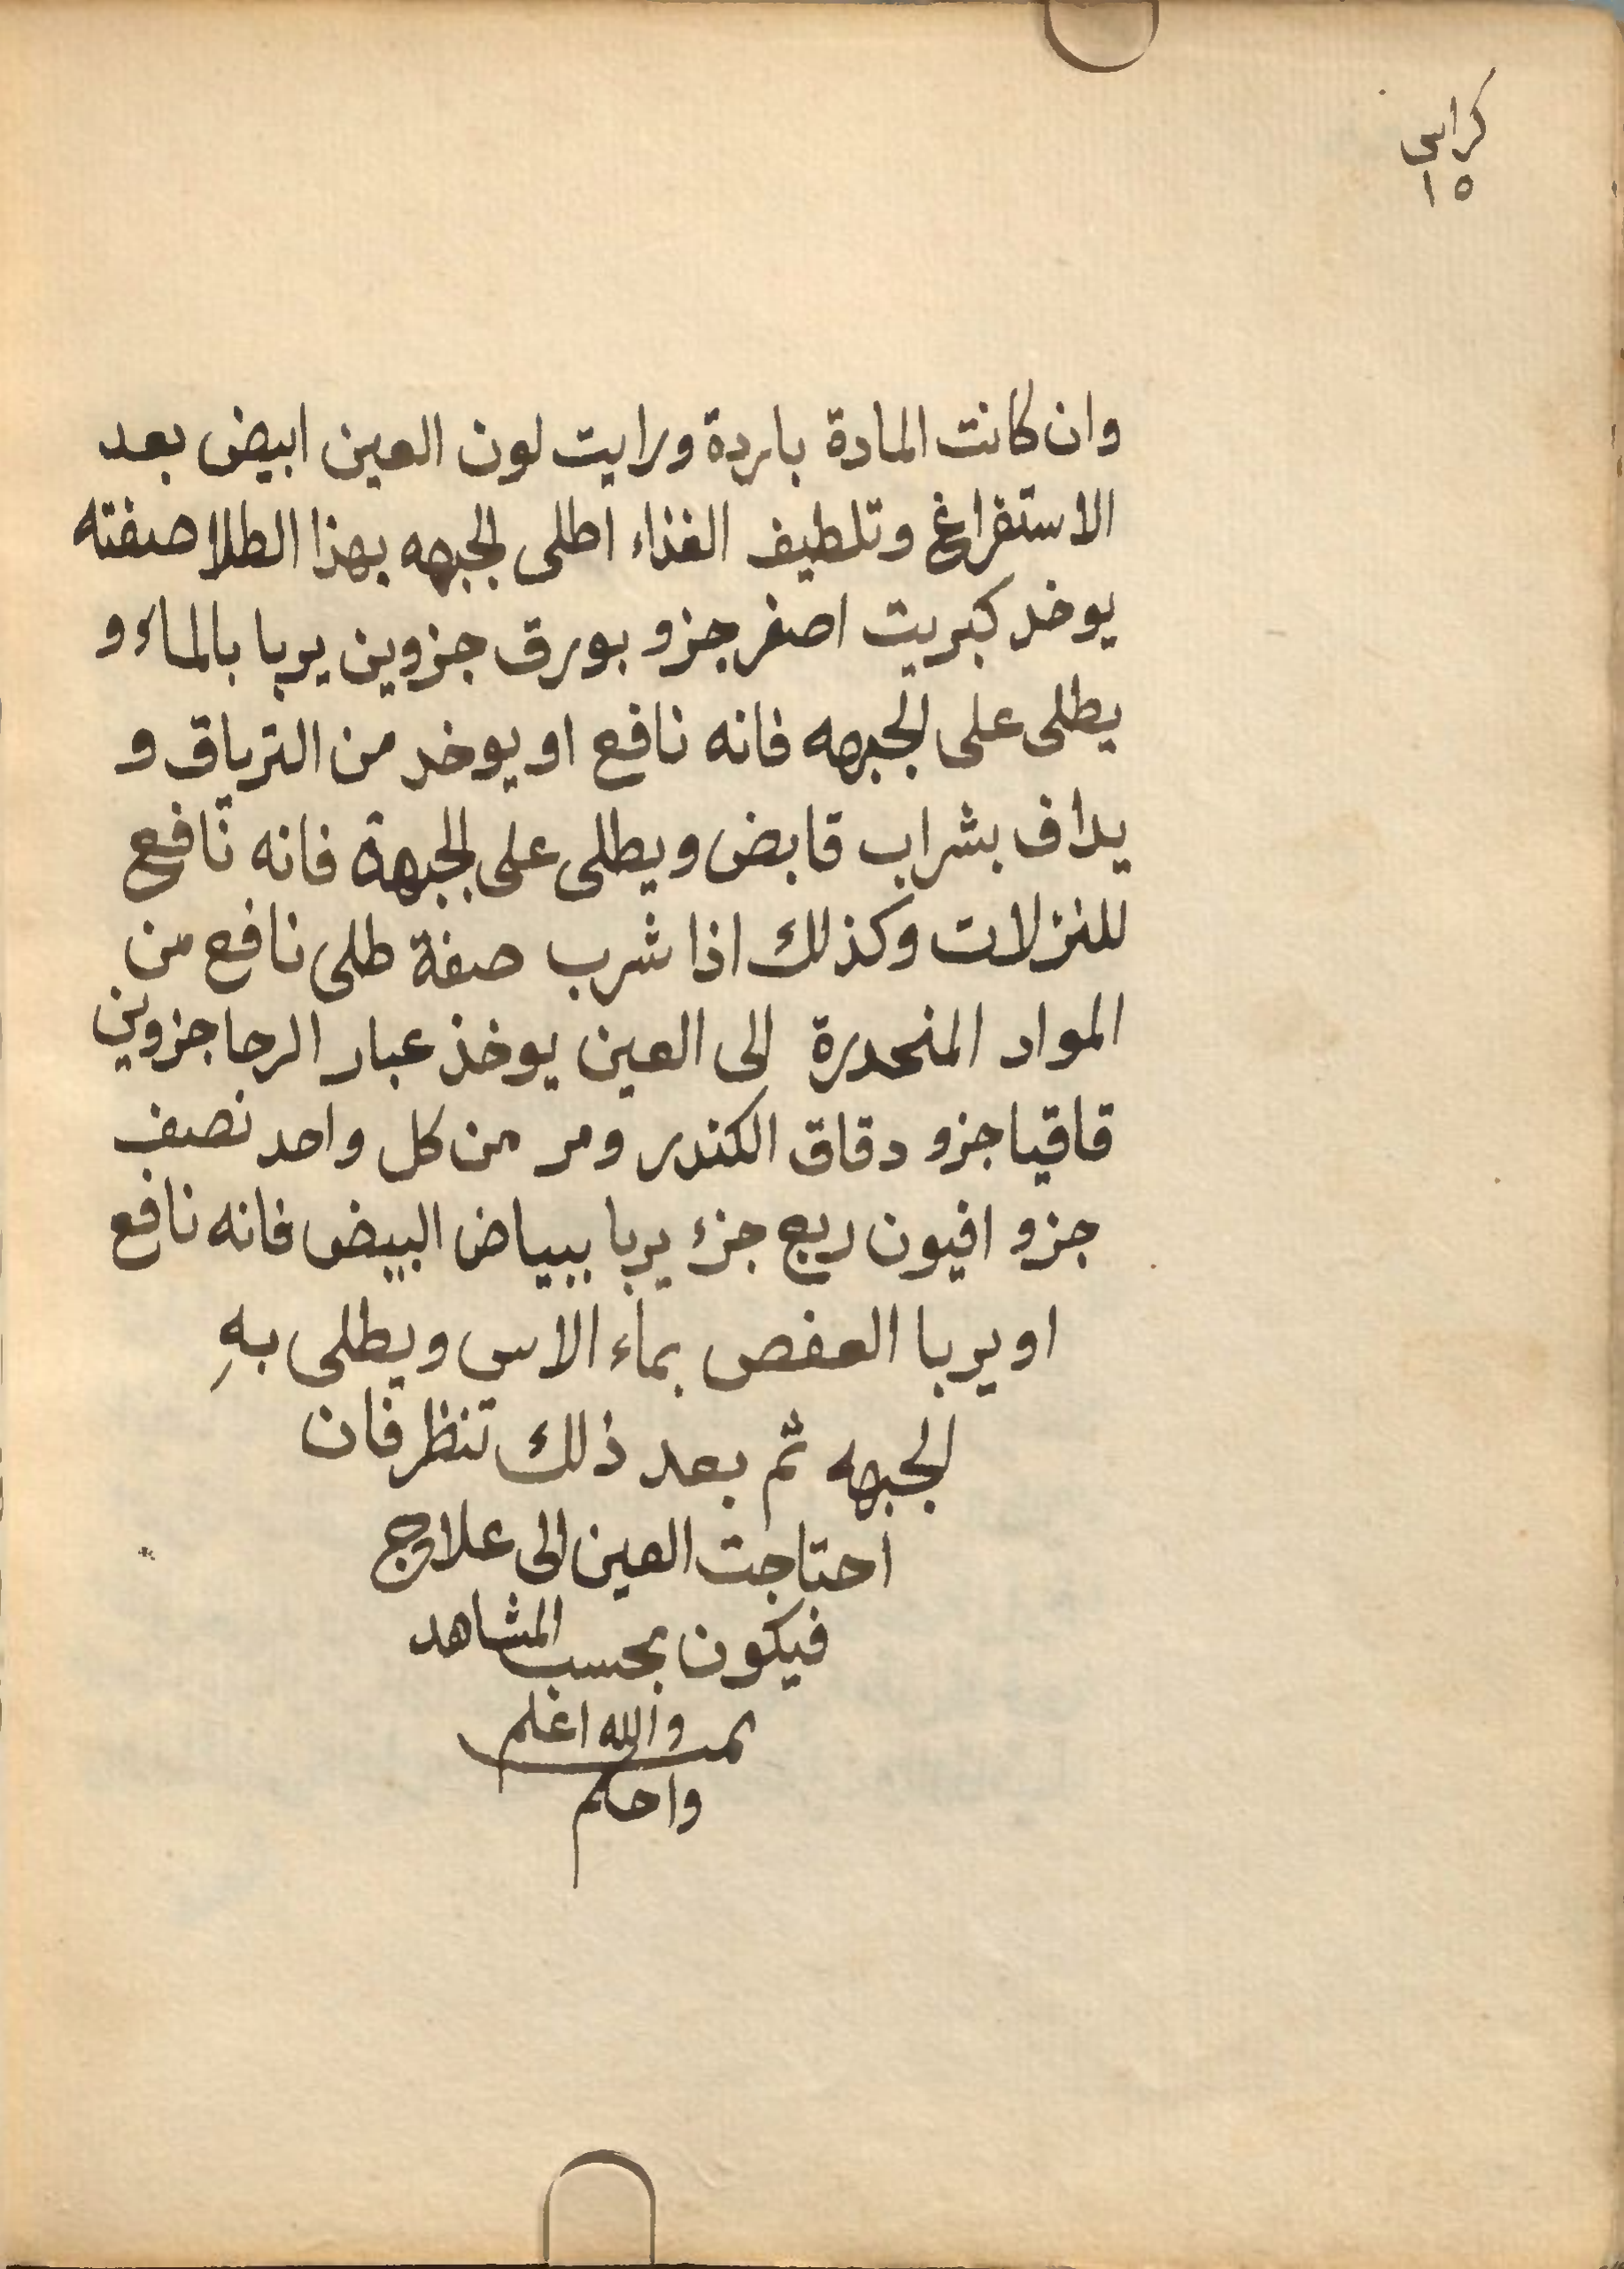 كراس
١٥
وان كانت المادة باردة ورايت لون العين ابيض بعد
الاستفراغ وتلطيف الغذاء اطلى الجبهه بهذا الطلا صفته
يوخد كبريت اصفر جزو بورق جزوين يربا بالماء و
يطلى على الجبهه فانه نافع او يوخد من الترياق و
يداف بشراب قابض ويطلى على الجبهة فانه نافع
للنزلات وكذلك اذا شرب صفة طلى نافع من
المواد المنحدرة الى العين يوخذ عبار الرحا جزوين
قاقيا جزو دقاق الكندر ومر من كل واحد نصف
جزو افيون ربع جزء يربا ببياض البيض فانه نافع
او يربا العفص بماء الاس ويطلى بهِ
الجبهه ثم بعد ذلك تنظر فان
احتاجت العين الى علاج
فيكون بحسب المشاهد
تمت والله اعلم
واحكم